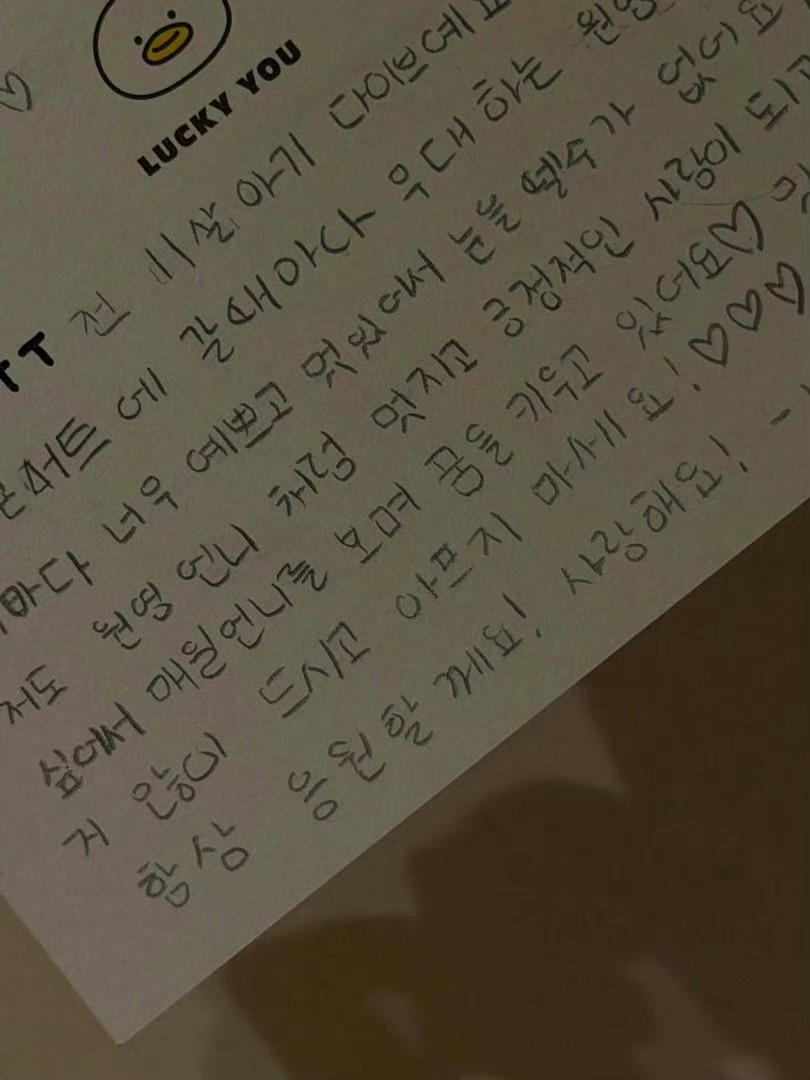 LUCKY YOU
전 11살 아기 다이브예요
콘서트에 갈때마다 무대하는 원영
마다 너무 예쁘고 멋있어서 눈을 뗄수가 없어요
저도 원영 언니 처럼 멋지고 긍정적인 사람이 되고
싶어서 매일언니를 보며 꿈을 키우고 있어요♡
거 많이 드시고 아프지 마세요! ♡♡♡
항상 응원할께요! 사랑해요! -